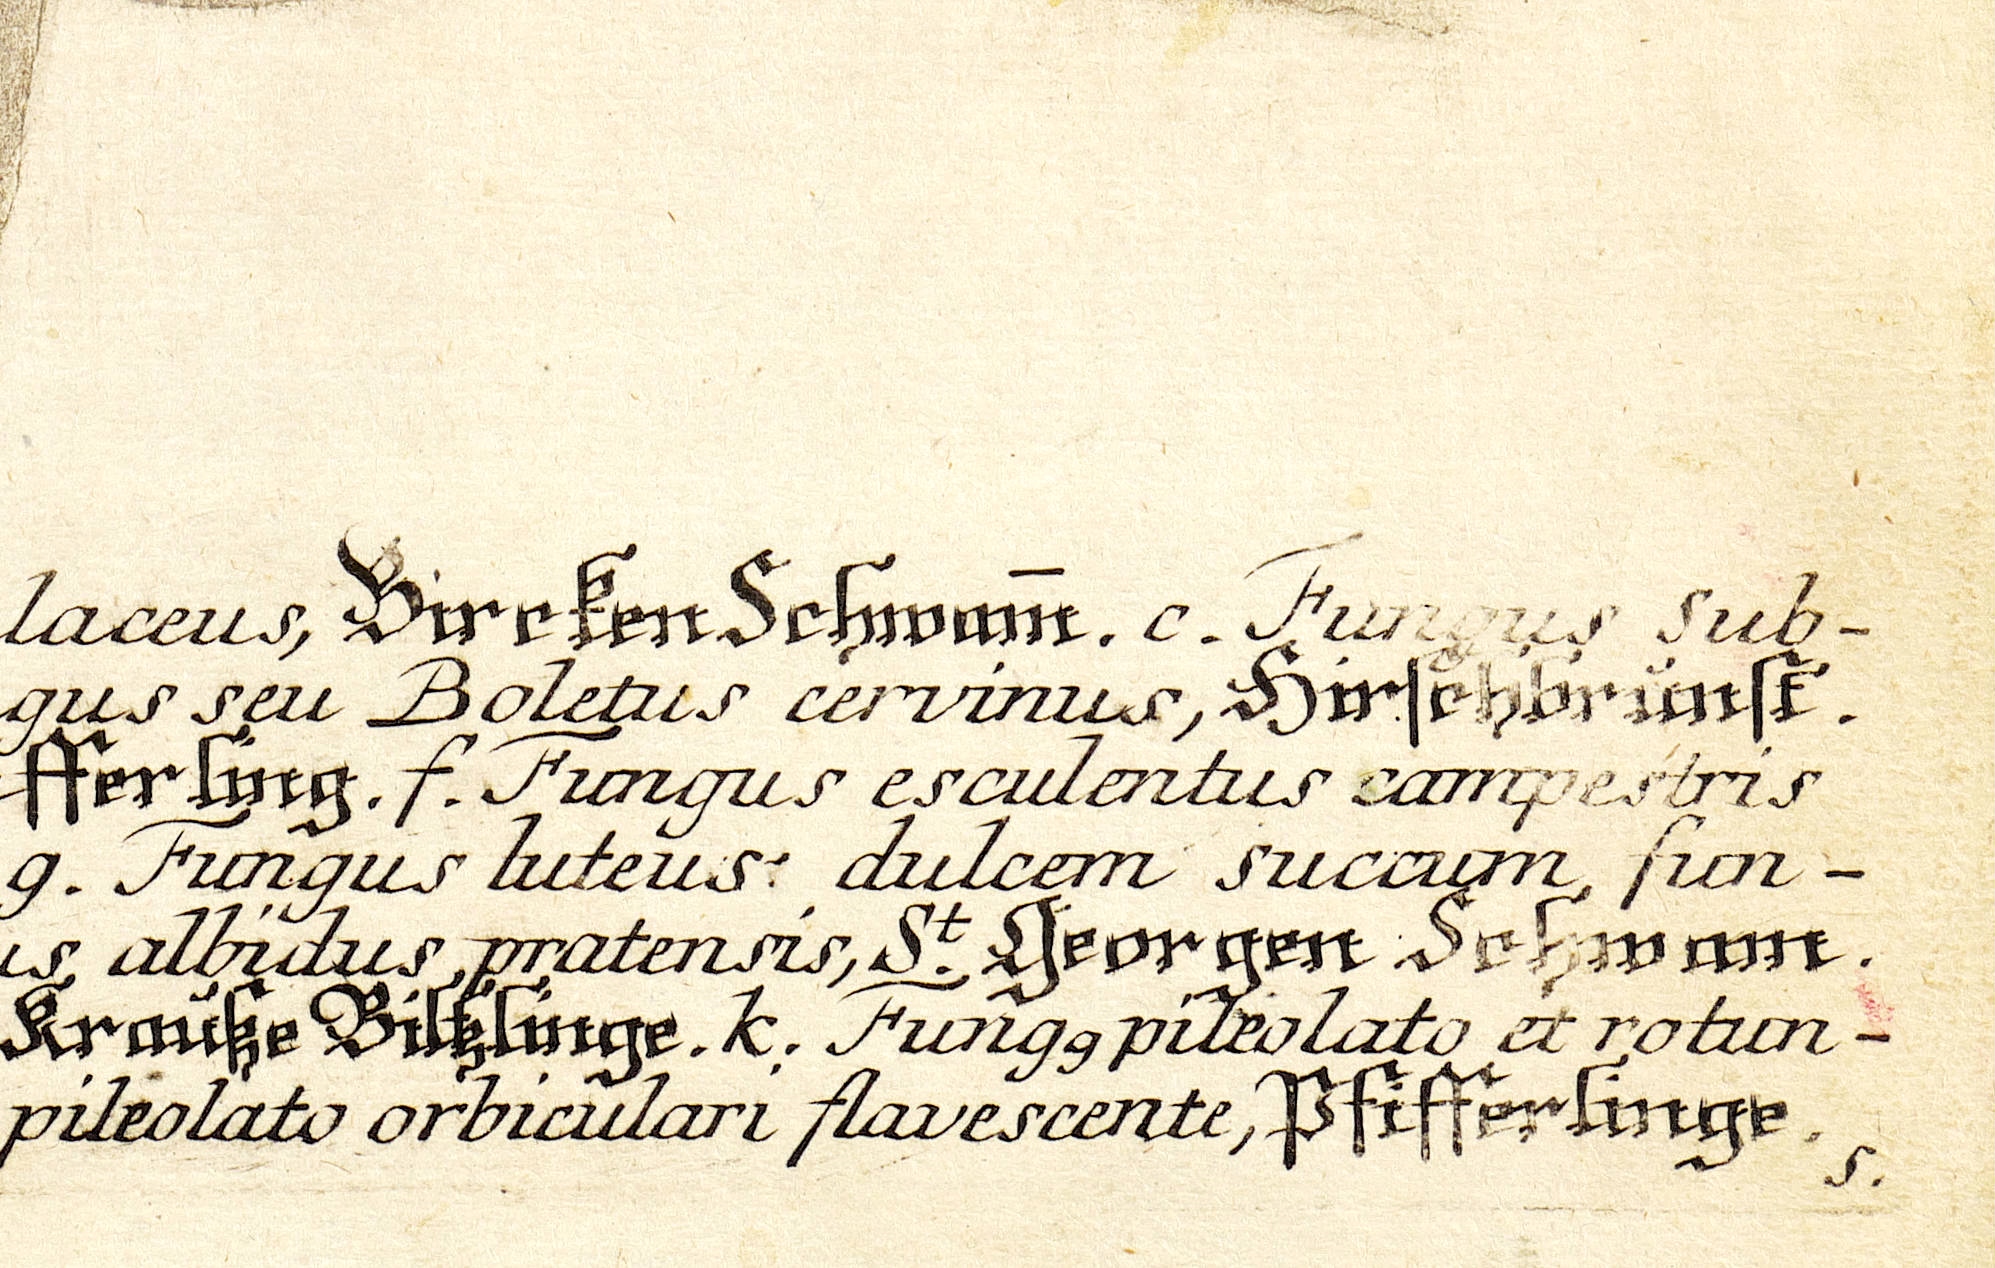 laceus, Bircken Schwam̄. c. Fungus sub-
gus seu Boletus cervinus, Hirschbrŭnst.
fferling. f. Fungus esculentus campestris
g. Fungus luteus: dulcem succum, fun-
us albidus, pratensis, St. Georgen Schwam.
Kraŭße Biltzlinge. k. Fungꝰ pileolato et rotun-
pileolato orbiculari flavescente, Pfifferlinge.
s.